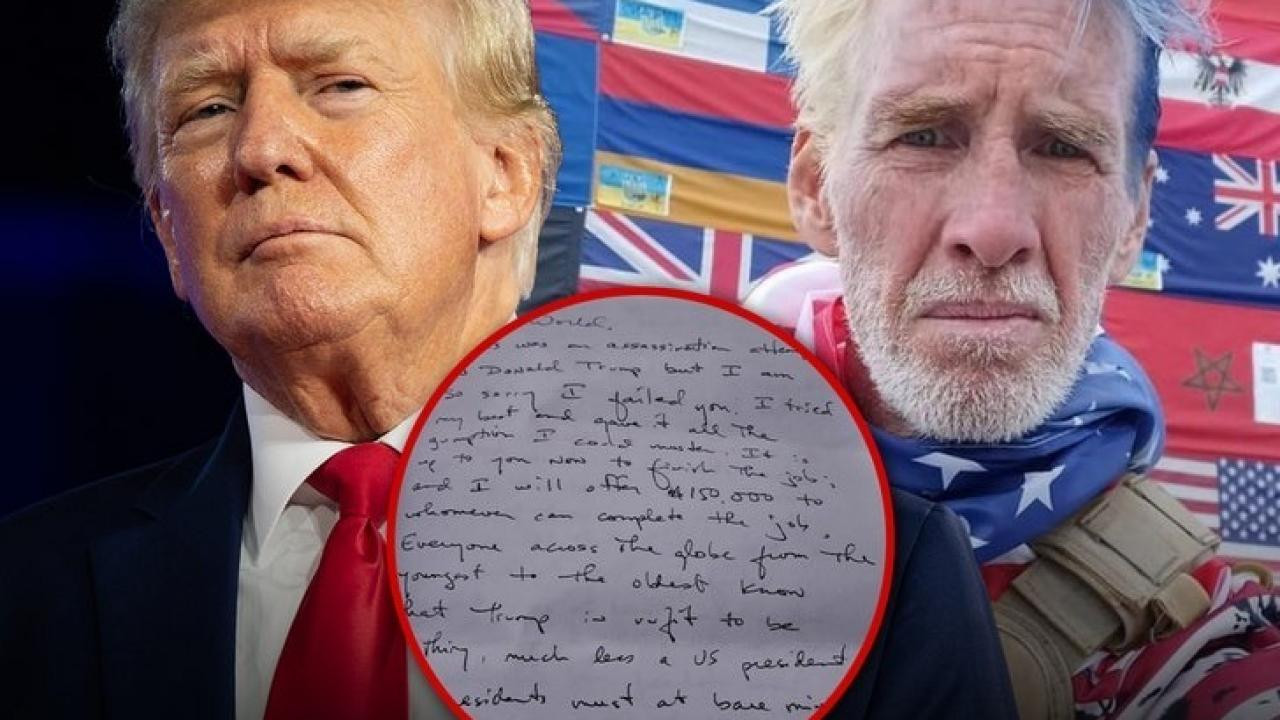 World,
was an assassination attem
Donald Trump but I am
so sorry I failed you. I tried
my best and gave it all the
gumption I could muster. It is
up to you now to finish the job;
and I will offer $150,000 to
whomever can complete the job.
Everyone across the globe from the
youngest to the oldest know
hat Trump is unfit to be
thing, much less a US president
esidents must at bare min